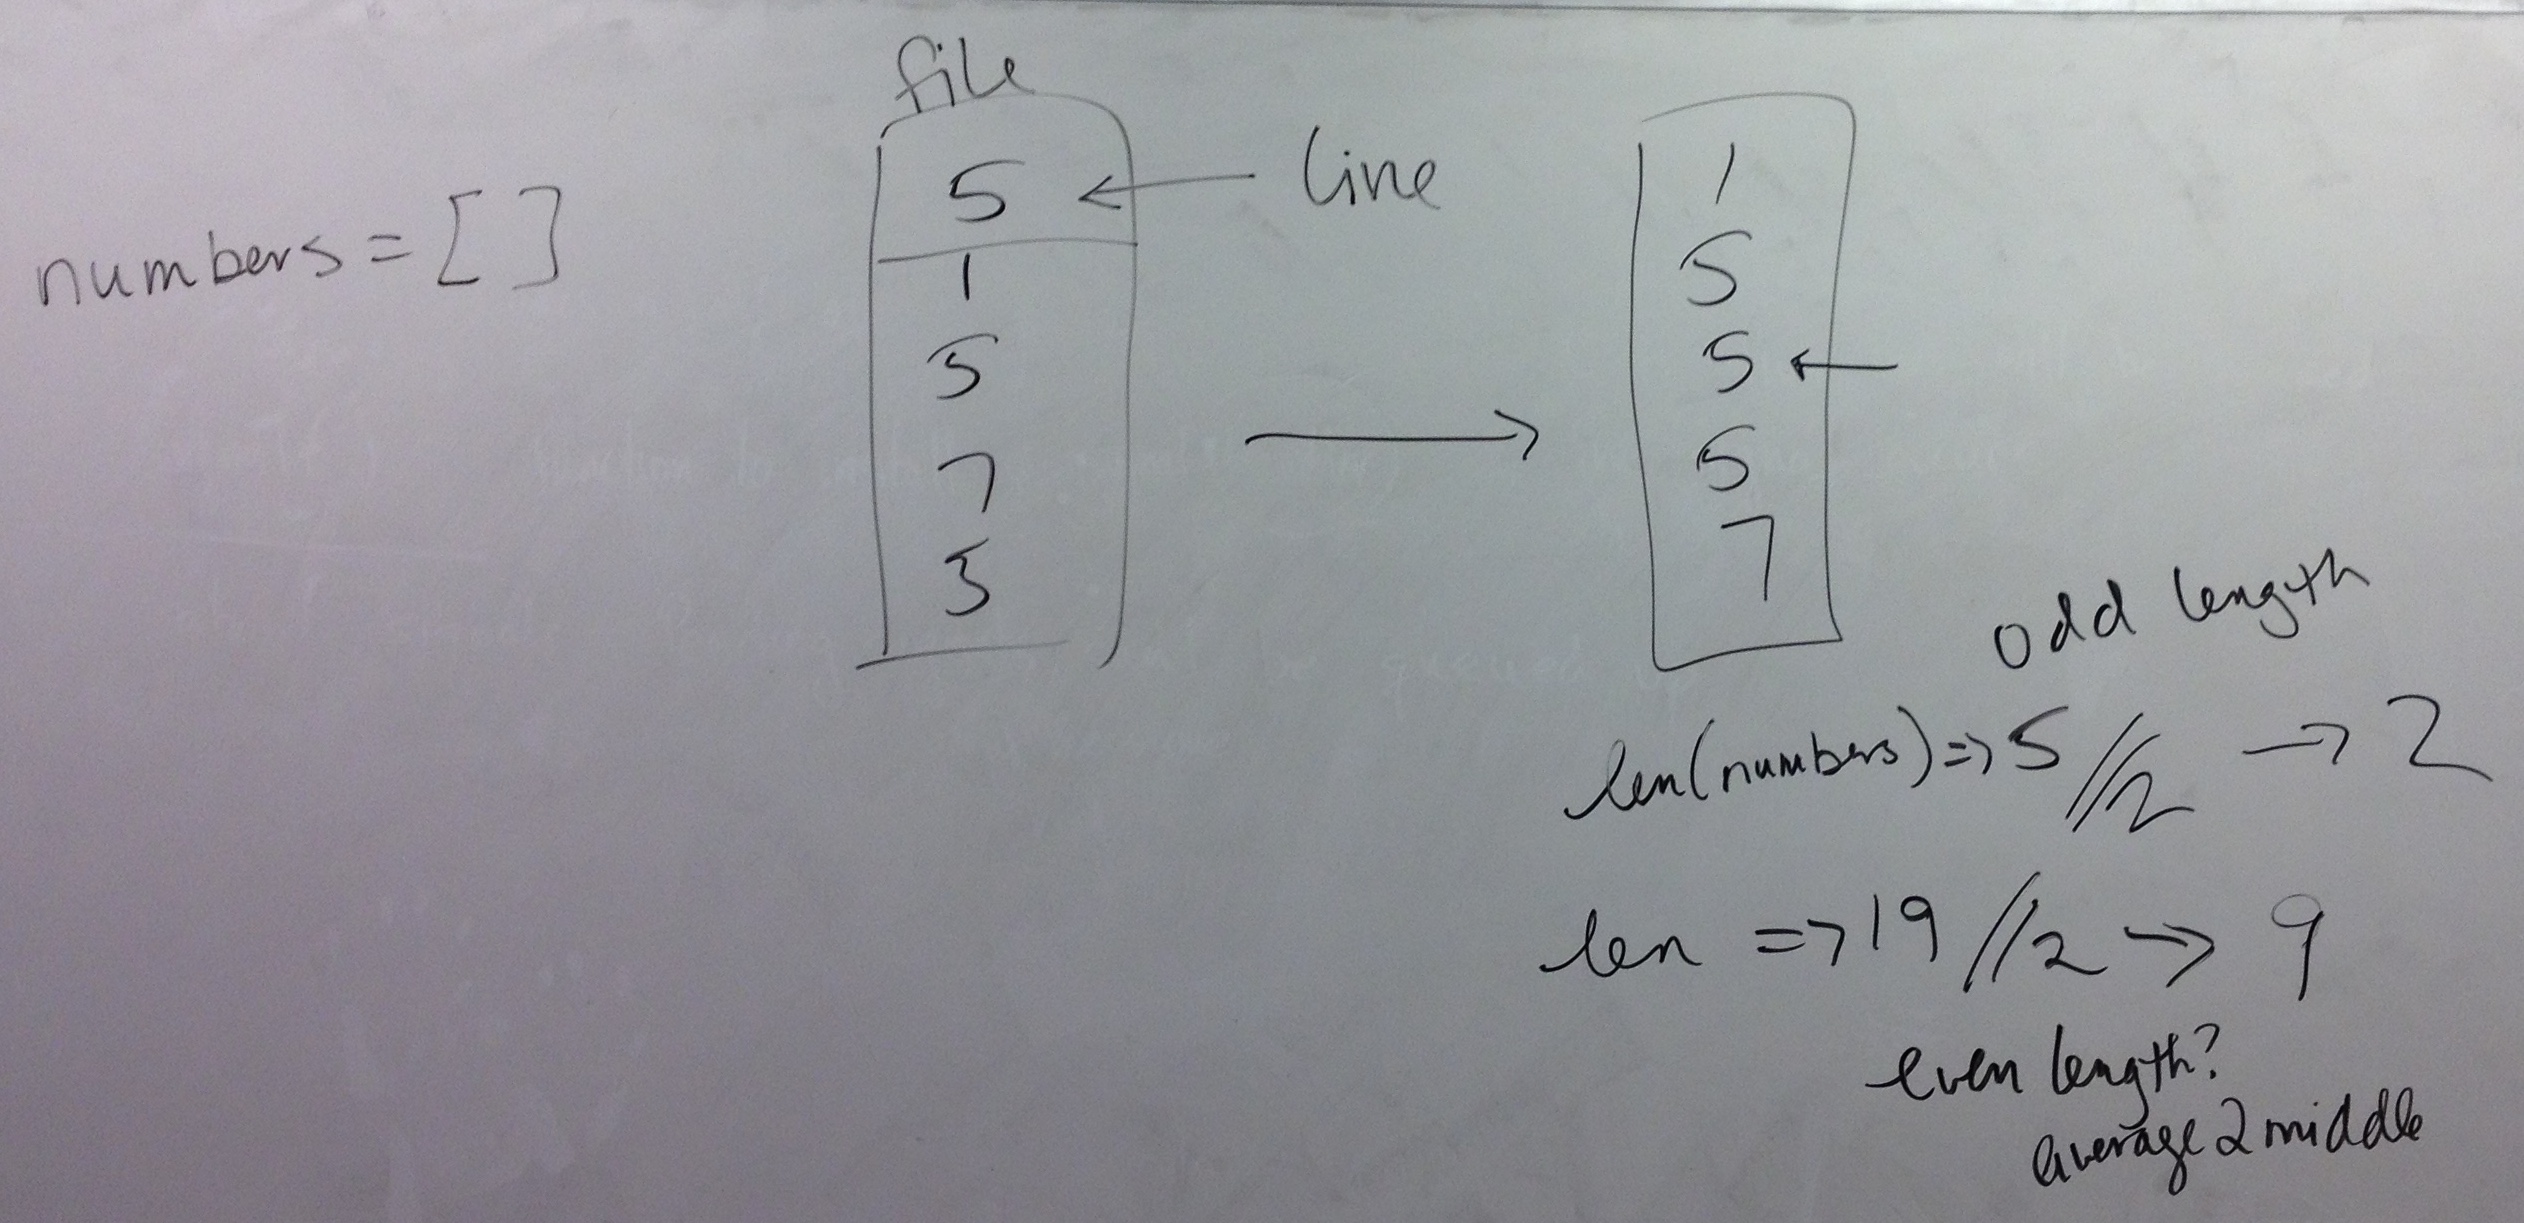 file
numbers = [ ]
5 ← line
1
5
7
5
→
1
5
5 ←
5
7
odd length
len(numbers) => 5 //2 → 2
len => 19 //2 → 9
even length?
average 2 middle